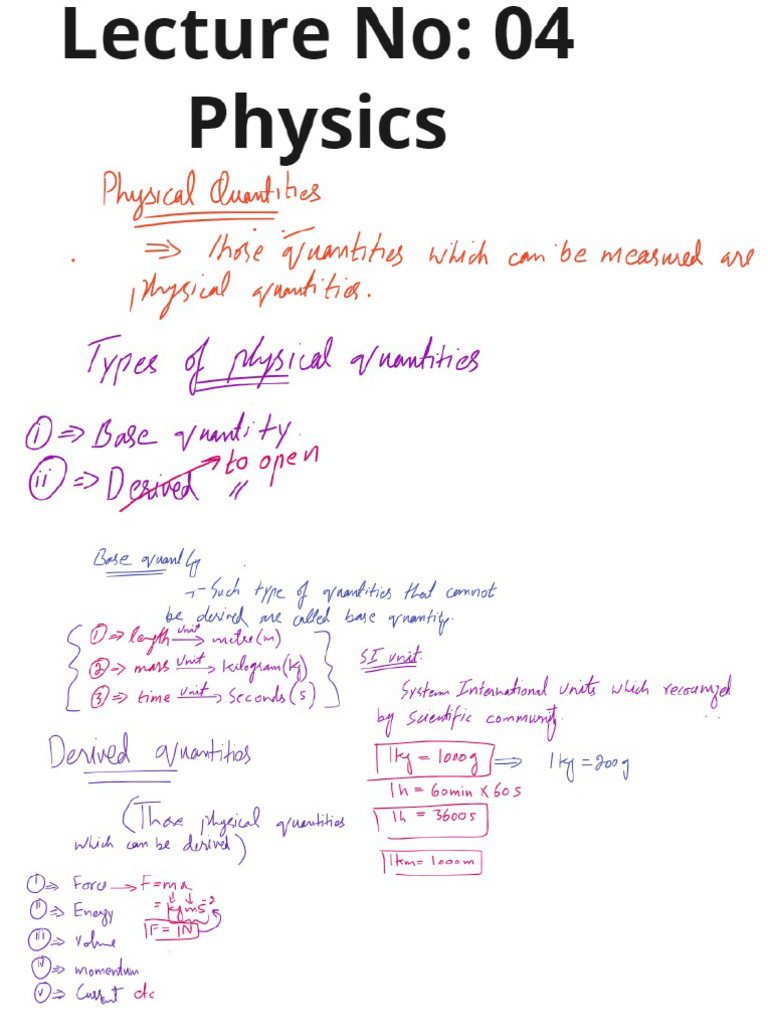 Lecture No: 04
Physics
Physical Quantities
⇒ Those quantities which can be measured are
physical quantities.
Types of physical quantities
(i) ⇒ Base quantity
(ii) ⇒ Derived "
→ to open
Base quantity
→ Such type of quantities that cannot
be derived are called base quantity.
① ⇒ length unit→ metre(m)
② ⇒ mass unit→ kilogram(kg)
③ ⇒ time unit→ Seconds(s)
SI unit.
System International units which
by scientific community.
1kg = 1000g ⇒ 1kg = 200g
1h = 60min × 60s
1h = 3600s
1km = 1000m
Derived quantities
(Those physical quantities
which can be derived)
(i) ⇒ Force → F = ma
= kgms⁻²
F = 1N
(ii) ⇒ Energy
(iii) ⇒ Volume
(iv) ⇒ momentum
(v) ⇒ Current etc